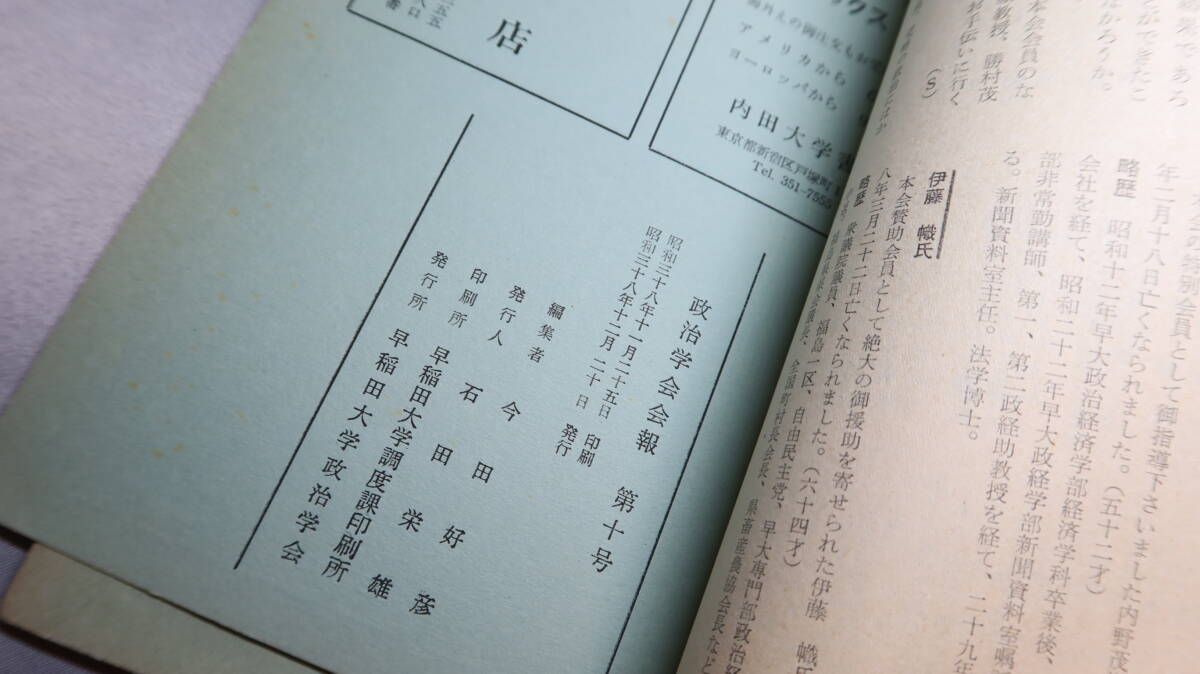 結果であろ
とができたこ
はかろうか。
本会会員のな
教授、勝村茂
お手伝いに行く
(S)
特別会員として御指導下さいました内野茂
年二月十八日亡くなられました。(五十二才)
略歴 昭和十二年早大政治経済学部経済学科卒業後、
会社を経て、昭和二十二年早大政経学部新聞資料室嘱
部非常勤講師、第一、第二政経助教授を経て、二十九年
る。新聞資料室主任。法学博士。
伊藤 幟氏
本会賛助会員として絶大の御援助を寄せられた伊藤 幟氏
八年三月二十二日亡くなられました。(六十四才)
略歴 衆議院議員、福島一区、自由民主党、早大専門部政治経
県会議長、全国町村長会長、県畜産農協会長など
ックス
海外えの御注文もお
アメリカから
ヨーロッパから
内田大学書
東京都新宿区戸塚町
Tel. 351-7555
店
政治学会会報 第十号
昭和三十八年十一月二十五日 印刷
昭和三十八年十二月二十日 発行
編集者 今田好彦
発行人 石田栄雄
印刷所 早稲田大学調度課印刷所
発行所 早稲田大学政治学会